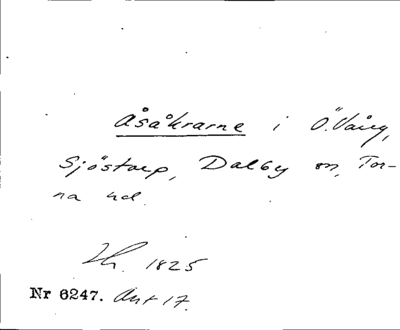 Åsåkrarne i Ö. Vång,
Sjöstorp, Dalby sn, Tor-
na hd.
1825
Nr 6247. Akt 17.